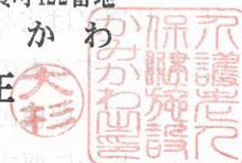 番地
かわ
大杉
介護老人
保健施設
かみかわ之印